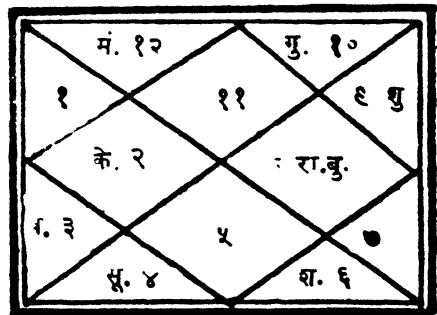 मं. १२ गु. १०
१ ११ ९ शु
के. २ रा.बु.
३ ५
सू. ४ श. ६